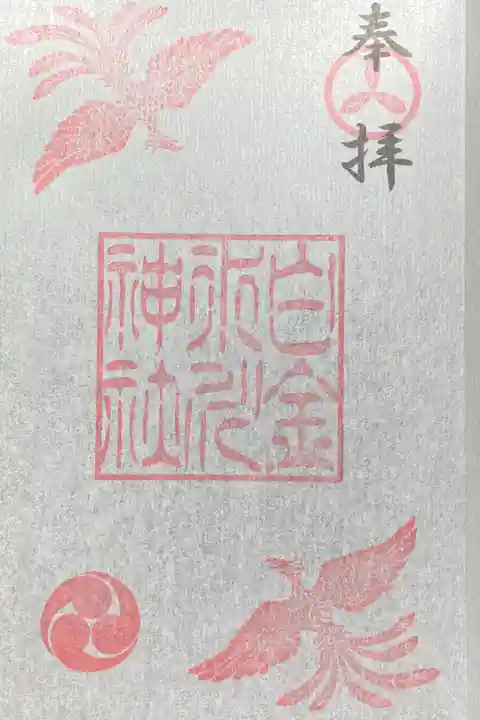 奉拝
白金
氷川
神社